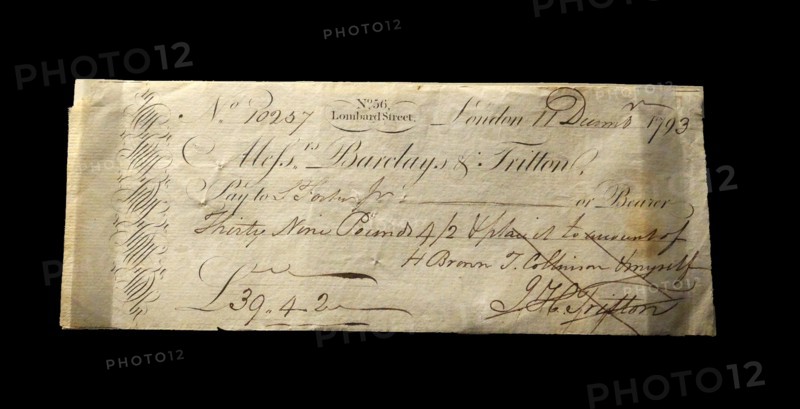 PHOTO12
PHOTO12
PHOTO12
No. 10257 No. 56, Lombard Street. London 11 Decemb.r 1793
Mess.rs Barclays & Tritton.
Pay to S Foster Jr. or Bearer
Thirty Nine Pounds 4/2 & place it to amount of
H Brown T. Collinson & myself
£39.4.2
J H Tritton
PHOTO12
PHOTO12
PHOTO12
PHOTO12
PHOTO12
PHOTO12
PHOTO12